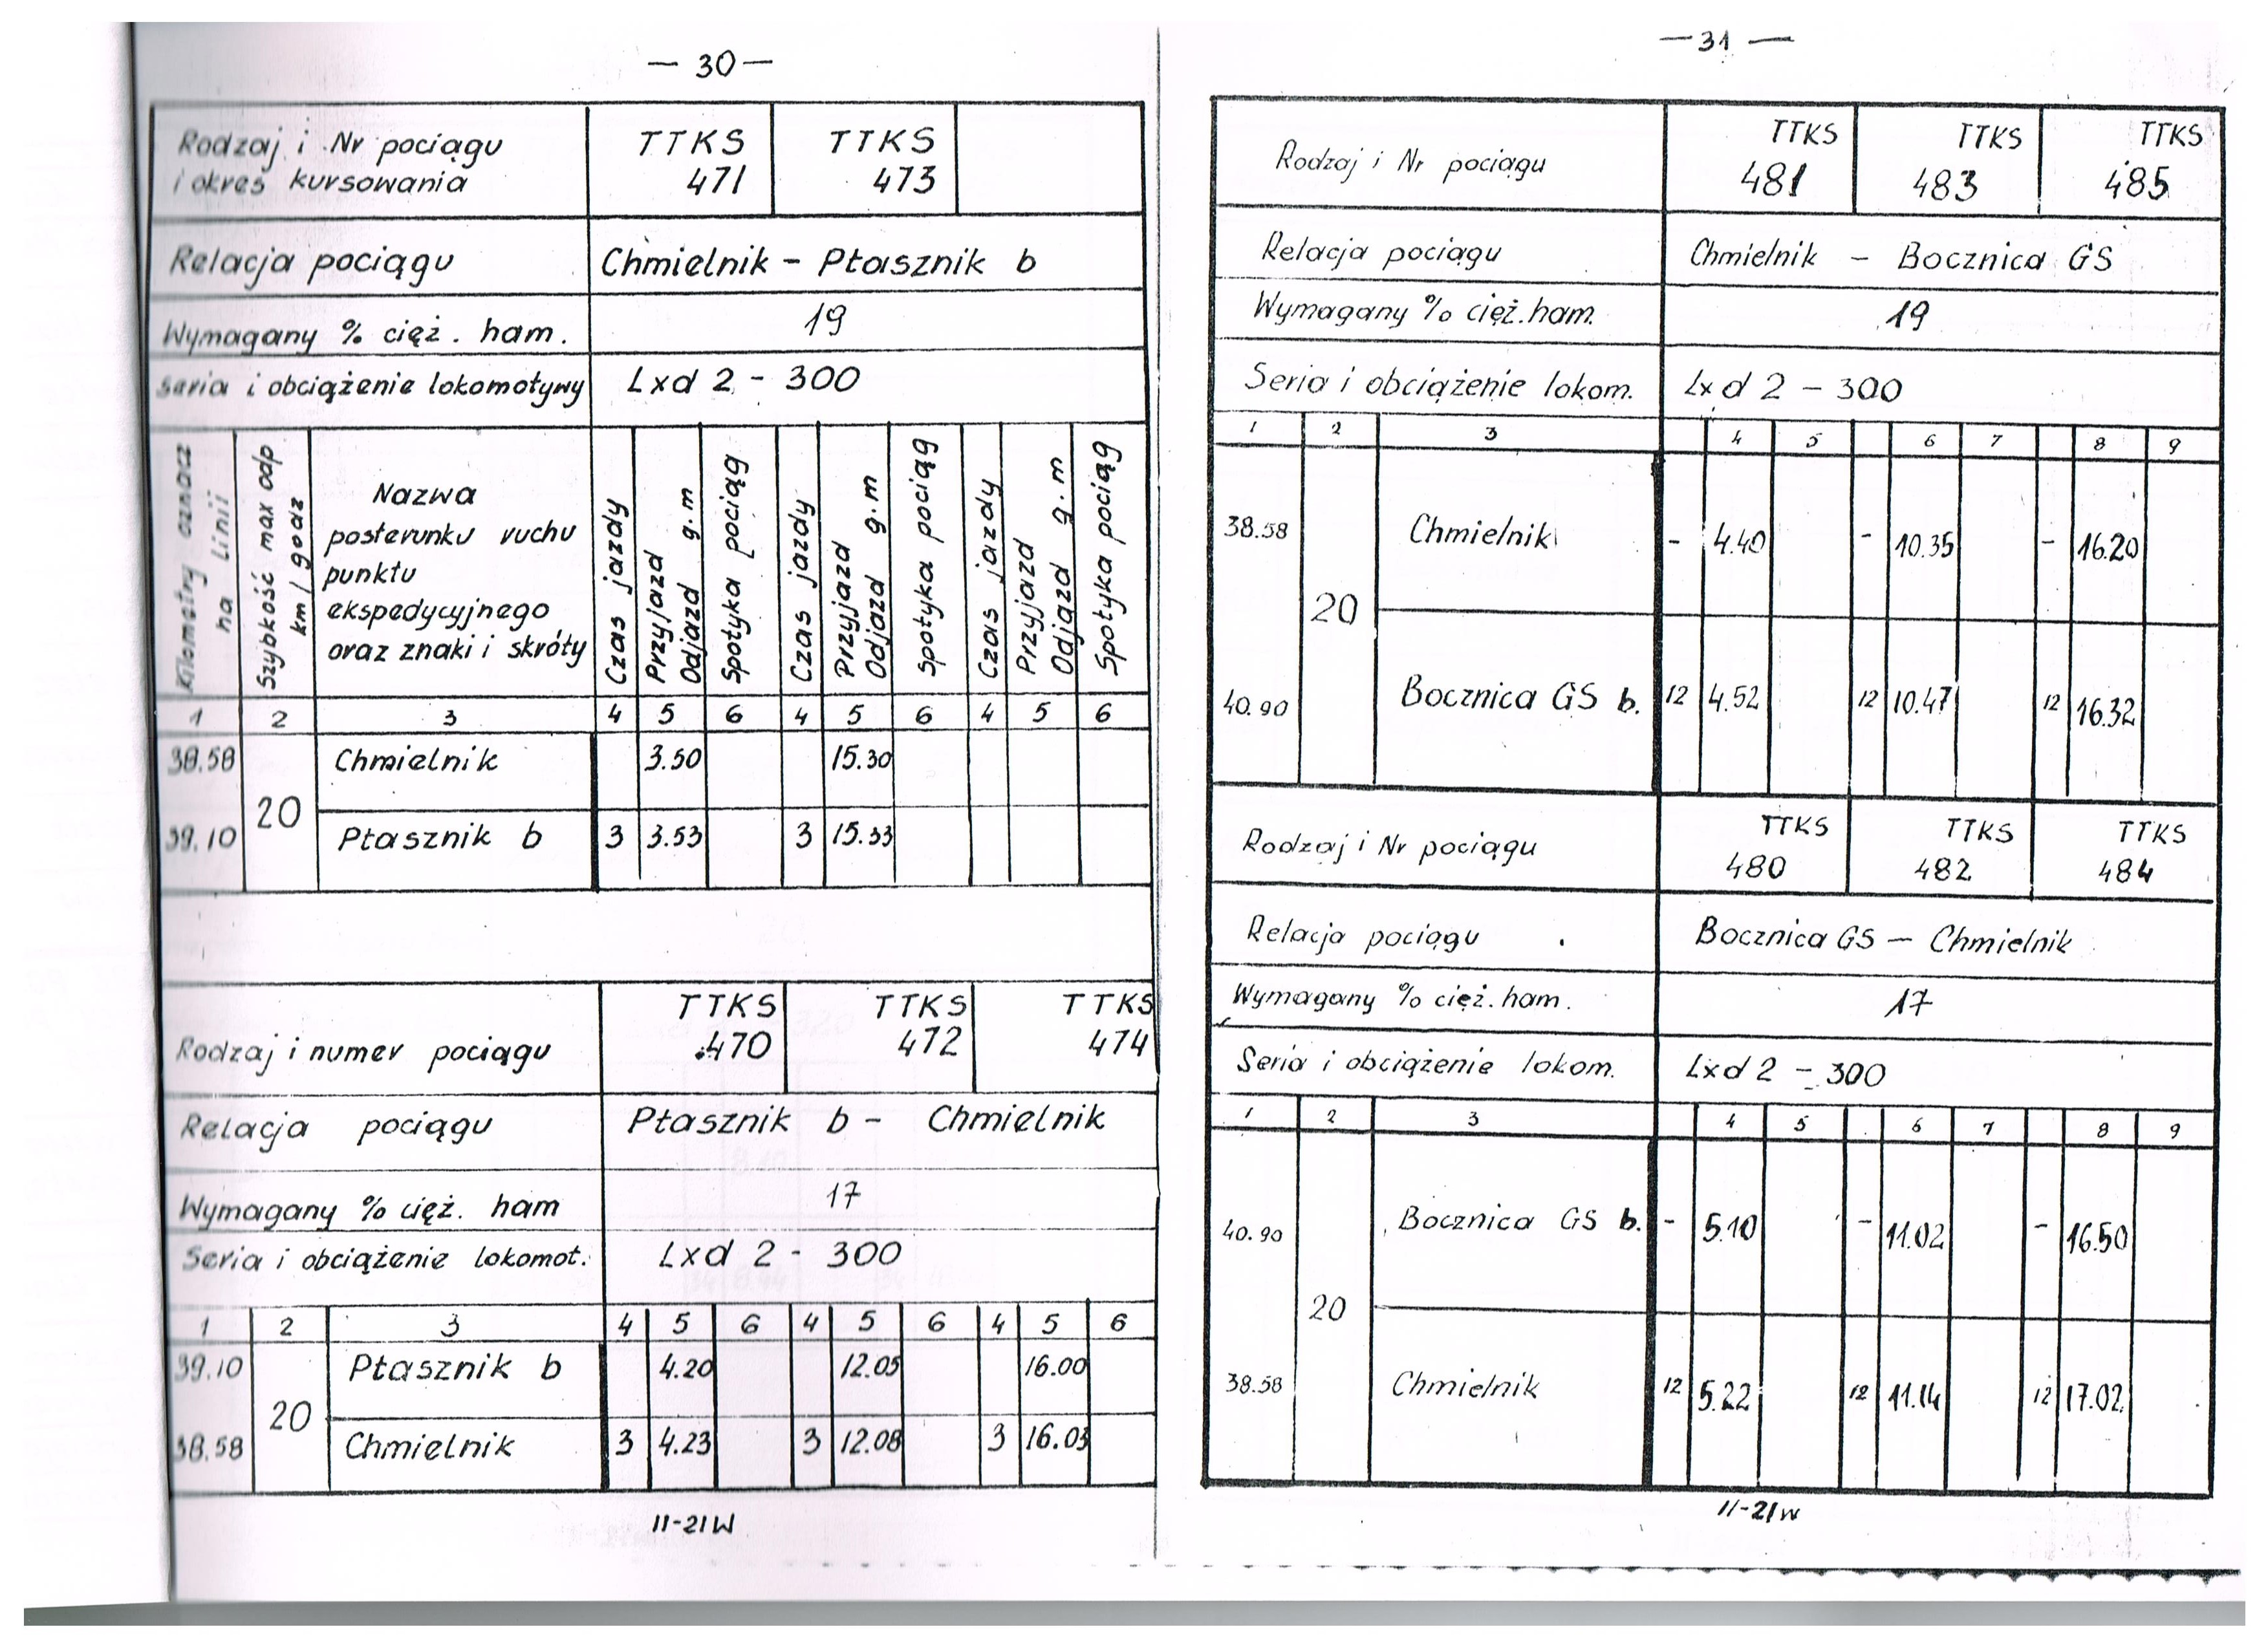 — 30 —
Rodzaj i Nr pociągu
i okres kursowania
TTKS
471
TTKS
473
Relacja pociągu
Chmielnik - Ptasznik b
Wymagany % cięż. ham.
19
Seria i obciążenie lokomotywy
Lxd 2 - 300
Kilometry oznacz
na linii
Szybkość max odp
km/godz
Nazwa
posterunku ruchu
punktu
ekspedycyjnego
oraz znaki i skróty
Czas jazdy
Przyjazd
Odjazd g.m
Spotyka pociąg
Czas jazdy
Przyjazd
Odjazd g.m
Spotyka pociąg
Czas jazdy
Przyjazd
Odjazd g.m
Spotyka pociąg
1 2 3 4 5 6 4 5 6 4 5 6
38.58 Chmielnik 3.50 15.30
20
39.10 Ptasznik b 3 3.53 3 15.33
Rodzaj i numer pociągu
TTKS
470
TTKS
472
TTKS
474
Relacja pociągu
Ptasznik b - Chmielnik
Wymagany % cięż. ham
17
Seria i obciążenie lokomot.
Lxd 2 - 300
1 2 3 4 5 6 4 5 6 4 5 6
39.10 Ptasznik b 4.20 12.05 16.00
20
38.58 Chmielnik 3 4.23 3 12.08 3 16.03
11-21W
— 31 —
Rodzaj i Nr pociągu
TTKS
481
TTKS
483
TTKS
485
Relacja pociągu
Chmielnik - Bocznica GS
Wymagany % cięż. ham.
19
Seria i obciążenie lokom.
Lxd 2 - 300
1 2 3 4 5 6 7 8 9
38.58 Chmielnik - 4.40 - 10.35 - 16.20
20
40.90 Bocznica GS b. 12 4.52 12 10.47 12 16.32
Rodzaj i Nr pociągu
TTKS
480
TTKS
482
TTKS
484
Relacja pociągu
Bocznica GS — Chmielnik
Wymagany % cięż. ham.
17
Seria i obciążenie lokom.
Lxd 2 - 300
1 2 3 4 5 6 7 8 9
40.90 Bocznica GS b. - 5.10 - 11.02 - 16.50
20
38.58 Chmielnik 12 5.22 12 11.14 12 17.02
11-21W